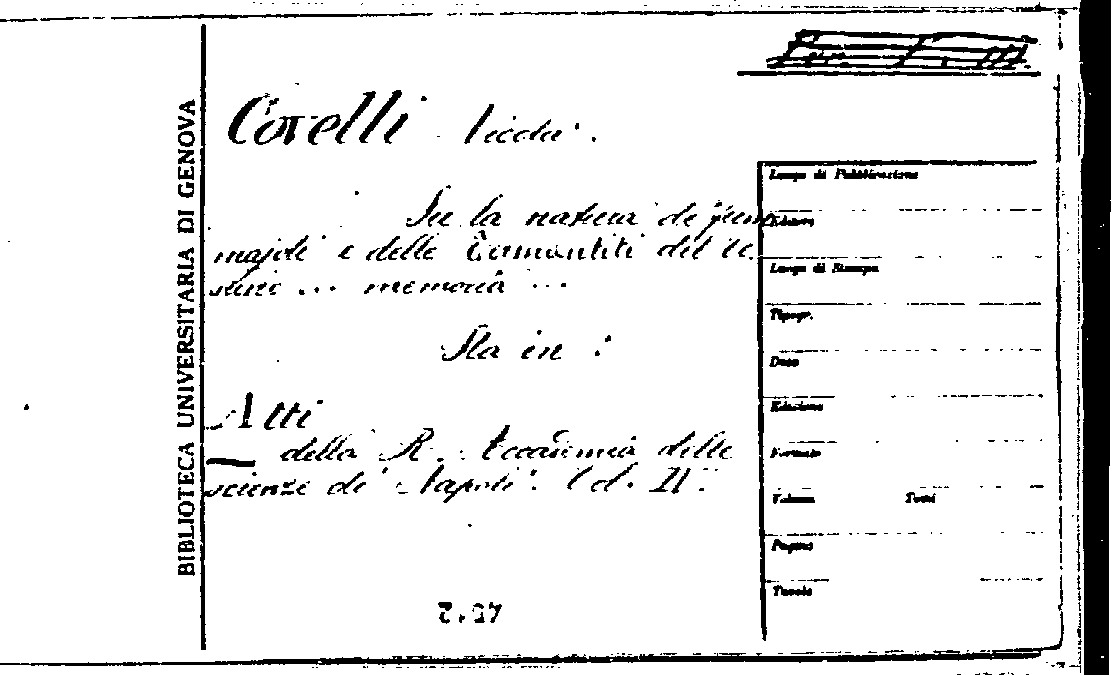 BIBLIOTECA UNIVERSITARIA DI GENOVA
Covelli Nicola.
Su la natura de' fum
majoli e delle Termantiti del Ve
suvio ... memoria ...
Sta in :
Atti
della R. Accademia delle
scienze di Napoli. Vol. IV.
Luogo di Pubblicazione
Editore
Luogo di Stampa
Tipogr.
Data
Edizione
Formato
Volume Tomi
Pagine
Tavole